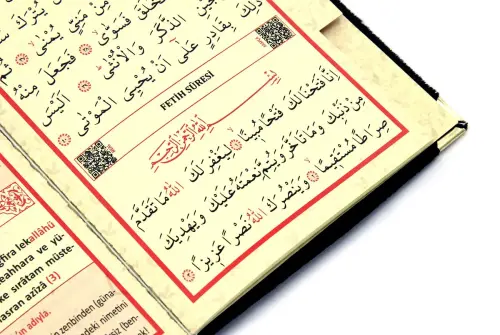 مِنْ مَنِيٍّ يُمْنٰىۙ
فَخَلَقَ فَسَوّٰىۙ فَجَعَلَ مِنْهُ
الذَّكَرَ وَالْاُنْثٰىۜ اَلَيْسَ
ذٰلِكَ بِقَادِرٍ عَلٰٓى اَنْ يُحْيِيَ الْمَوْتٰى
FETİH SÛRESİ
بِسْمِ اللّٰهِ الرَّحْمٰنِ الرَّح۪يمِ
اِنَّا فَتَحْنَا لَكَ فَتْحًا مُب۪ينًاۙ لِيَغْفِرَ لَكَ اللّٰهُ مَا تَقَدَّمَ
مِنْ ذَنْبِكَ وَمَا تَاَخَّرَ وَيُتِمَّ نِعْمَتَهُ عَلَيْكَ وَيَهْدِيَكَ
صِرَاطًا مُسْتَق۪يمًاۙ وَيَنْصُرَكَ اللّٰهُ نَصْرًا عَز۪يزًا
lekallâhü
eahhara ve yü-
ke sırâtam müste-
nasran azîzâ (3)
adıyla.
zenbinden (güna-
deki nimetini